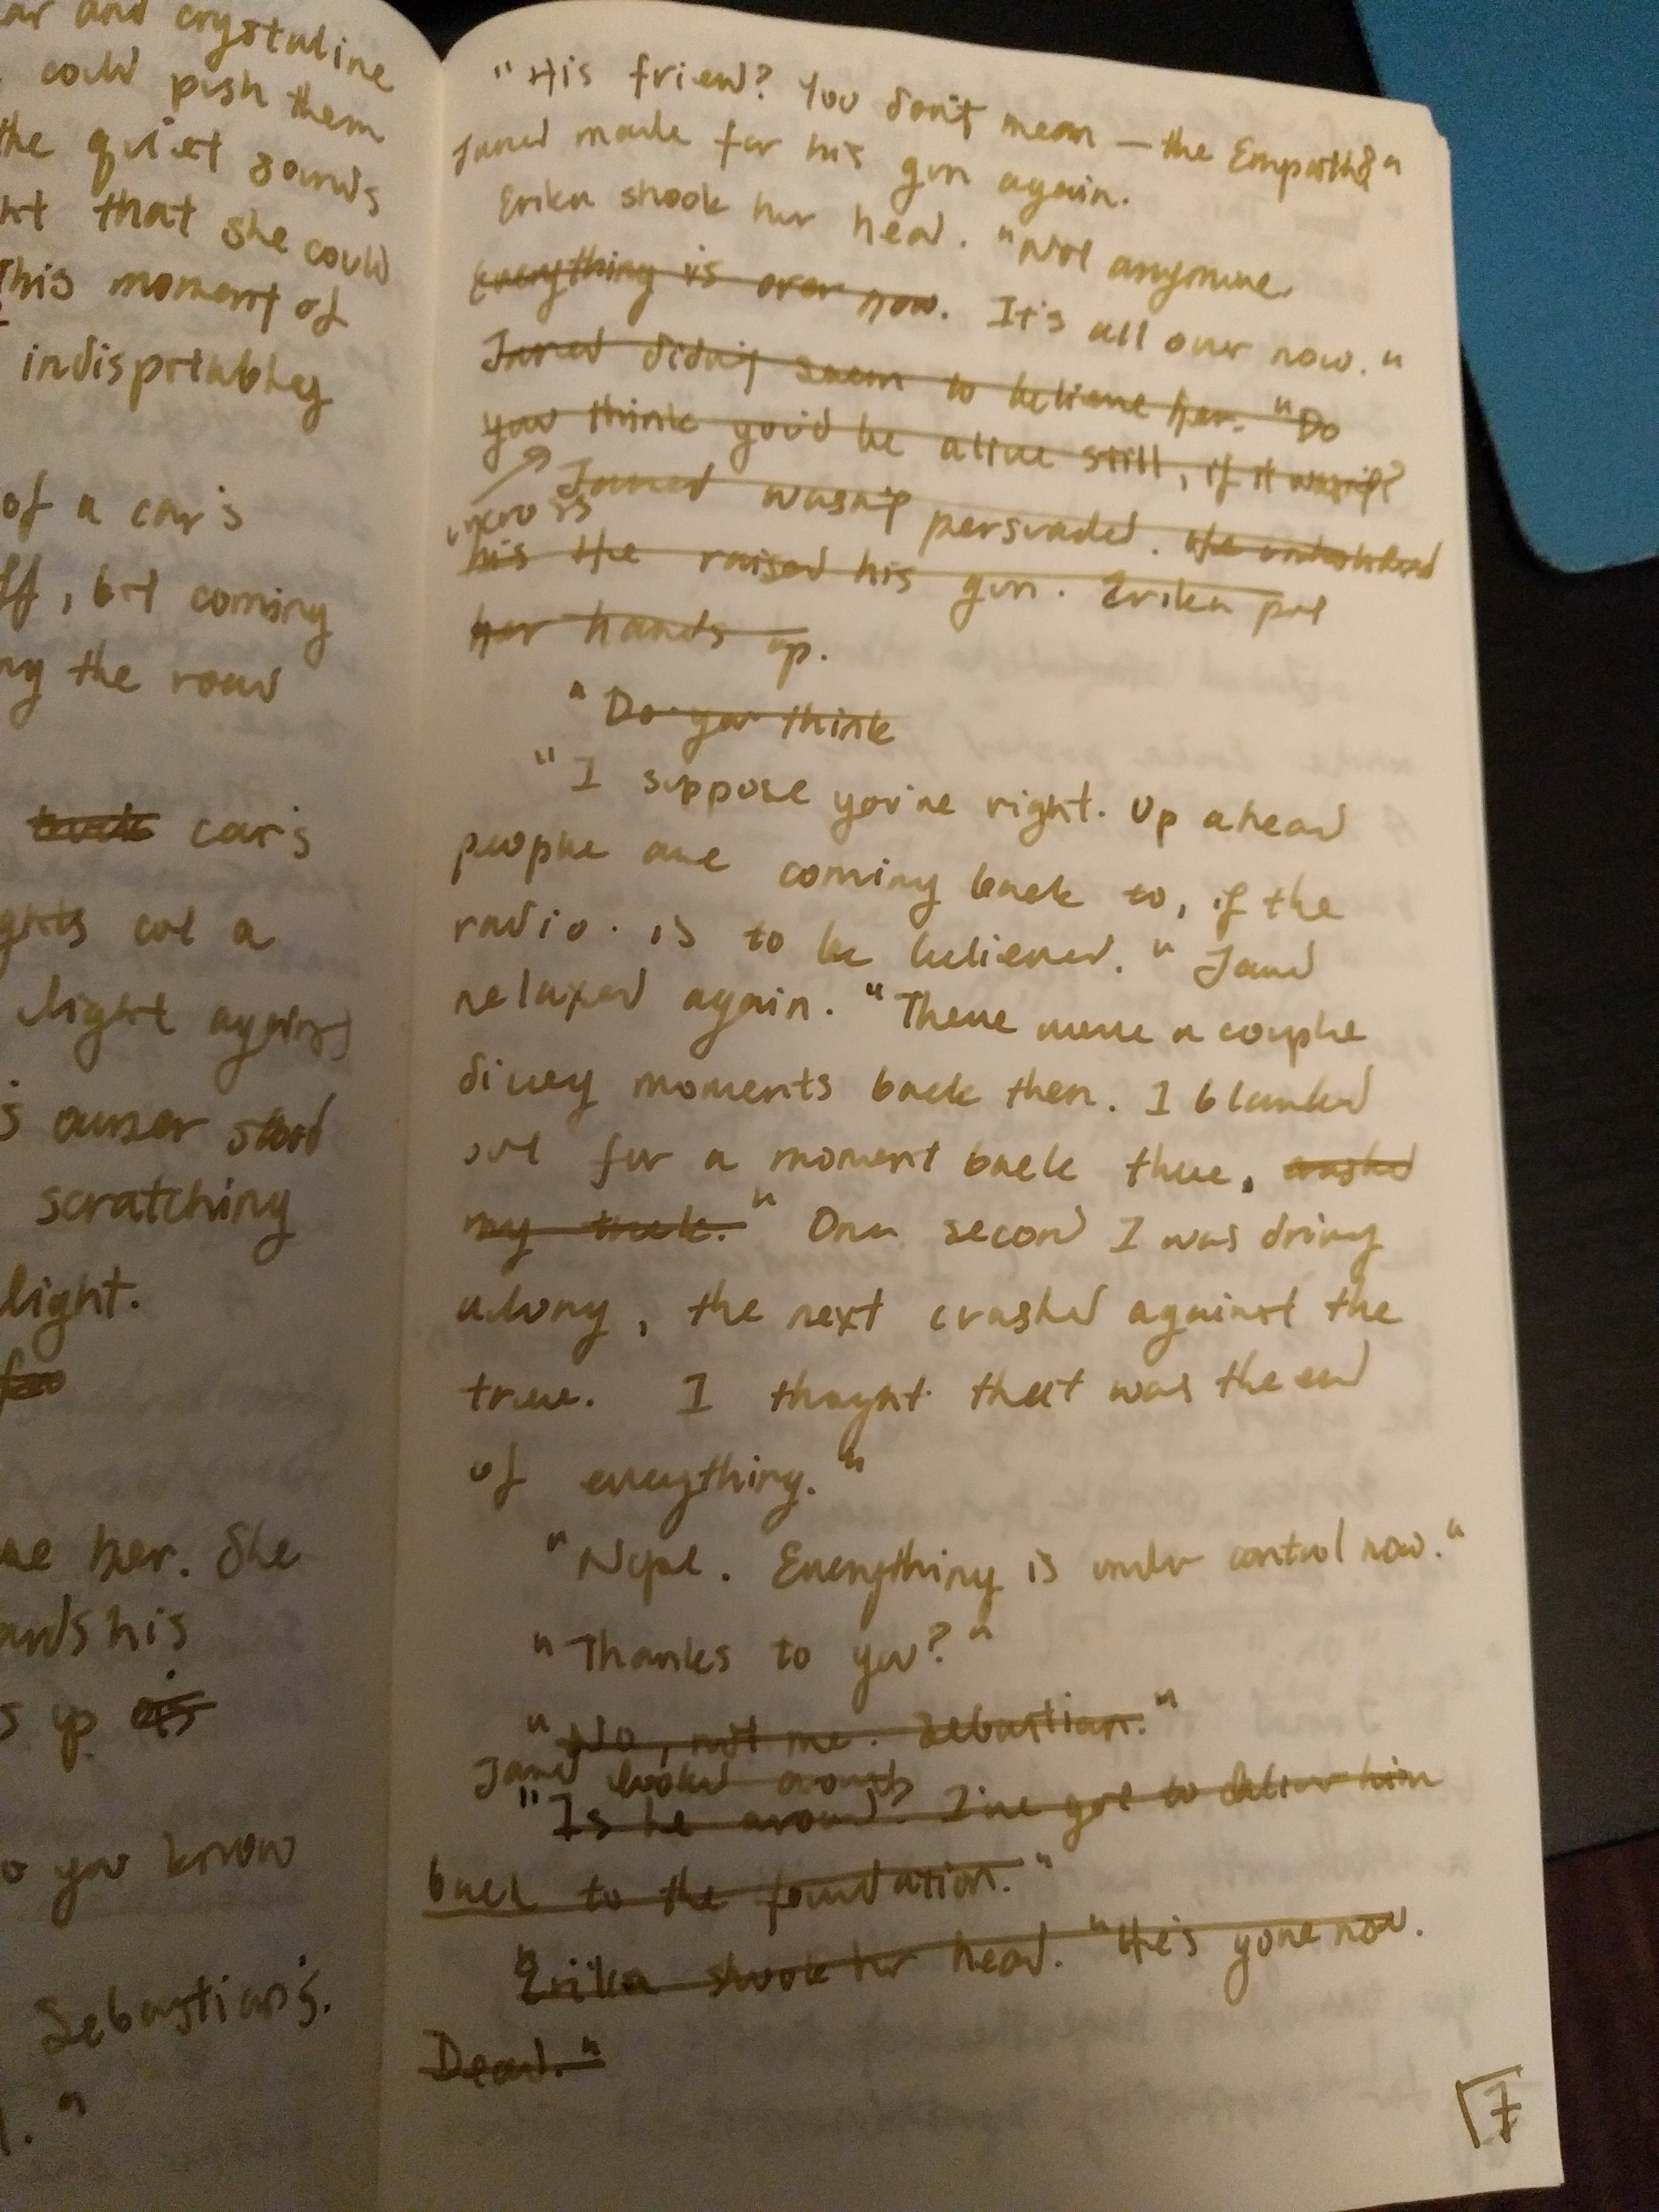 ar and crystaline
could push them
the quiet sounds
that she could
This moment of
indisputabley
of a car's
ff, but coming
ng the road
car's
ghts cut a
light against
s owner stood
scratching
light.
me her. She
ards his
s up as
o you know
Sebastian's.
"
"His friend? You don't mean — the Empath?"
Jared made for his gun again.
Erika shook her head. "Not anymore.
Everything is over now. It's all over now."
Jared didn't seem to believe her. "Do
you think you'd be alive still, if it wasn't?
Jared wasn't persuaded. He
his He raised his gun. Erika put
her hands up.
"Do you think
"I suppose you're right. Up ahead
people are coming back to, if the
radio is to be believed." Jared
relaxed again. "There were a couple
dicey moments back then. I blanked
out for a moment back there, crashed
my truck." One second I was driving
along, the next crashed against the
tree. I thought that was the end
of everything."
"Nope. Everything is under control now."
"Thanks to you?"
"No, not me. Sebastian."
Jared looked around
"Is he around? I've got to deliver him
back to the foundation."
Erika shook her head. "He's gone now.
Dead."
7